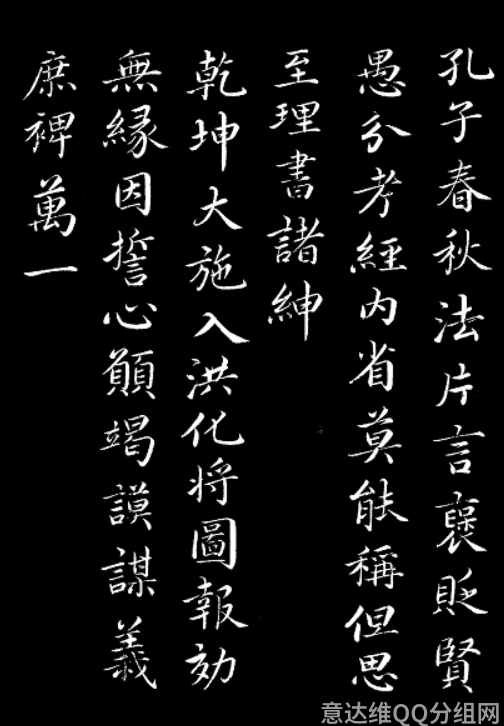 孔子春秋法片言襃貶賢
愚分考經内省莫能稱但思
至理書諸紳
乾坤大施入洪化將圖報効
無緣因誓心願竭謨謀義
庶裨萬一
意达维QQ分组网